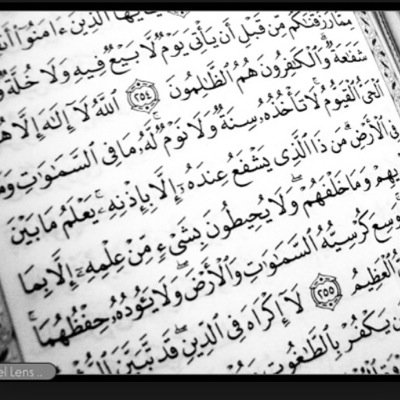 ٱلَّذِينَ ءَامَنُوٓا۟
مِمَّا رَزَقْنَٰكُم مِّن قَبْلِ أَن يَأْتِىَ يَوْمٌ لَّا بَيْعٌ فِيهِ وَلَا خُلَّةٌ
شَفَٰعَةٌ ۗ وَٱلْكَٰفِرُونَ هُمُ ٱلظَّٰلِمُونَ ٢٥٤ ٱللَّهُ لَآ إِلَٰهَ إِلَّا
ٱلْحَىُّ ٱلْقَيُّومُ ۚ لَا تَأْخُذُهُۥ سِنَةٌ وَلَا نَوْمٌ ۚ لَّهُۥ مَا فِى ٱلسَّمَٰوَٰتِ
فِى ٱلْأَرْضِ ۗ مَن ذَا ٱلَّذِى يَشْفَعُ عِندَهُۥٓ إِلَّا بِإِذْنِهِۦ ۚ يَعْلَمُ مَا بَيْنَ
يهِمْ وَمَا خَلْفَهُمْ ۖ وَلَا يُحِيطُونَ بِشَىْءٍ مِّنْ عِلْمِهِۦٓ إِلَّا بِمَا
وَسِعَ كُرْسِيُّهُ ٱلسَّمَٰوَٰتِ وَٱلْأَرْضَ ۖ وَلَا يَـُٔودُهُۥ حِفْظُهُمَا ۚ
ٱلْعَظِيمُ ٢٥٥ لَآ إِكْرَاهَ فِى ٱلدِّينِ ۖ قَد تَّبَيَّنَ
يَكْفُرْ بِٱلطَّٰغُوتِ
el Lens ..